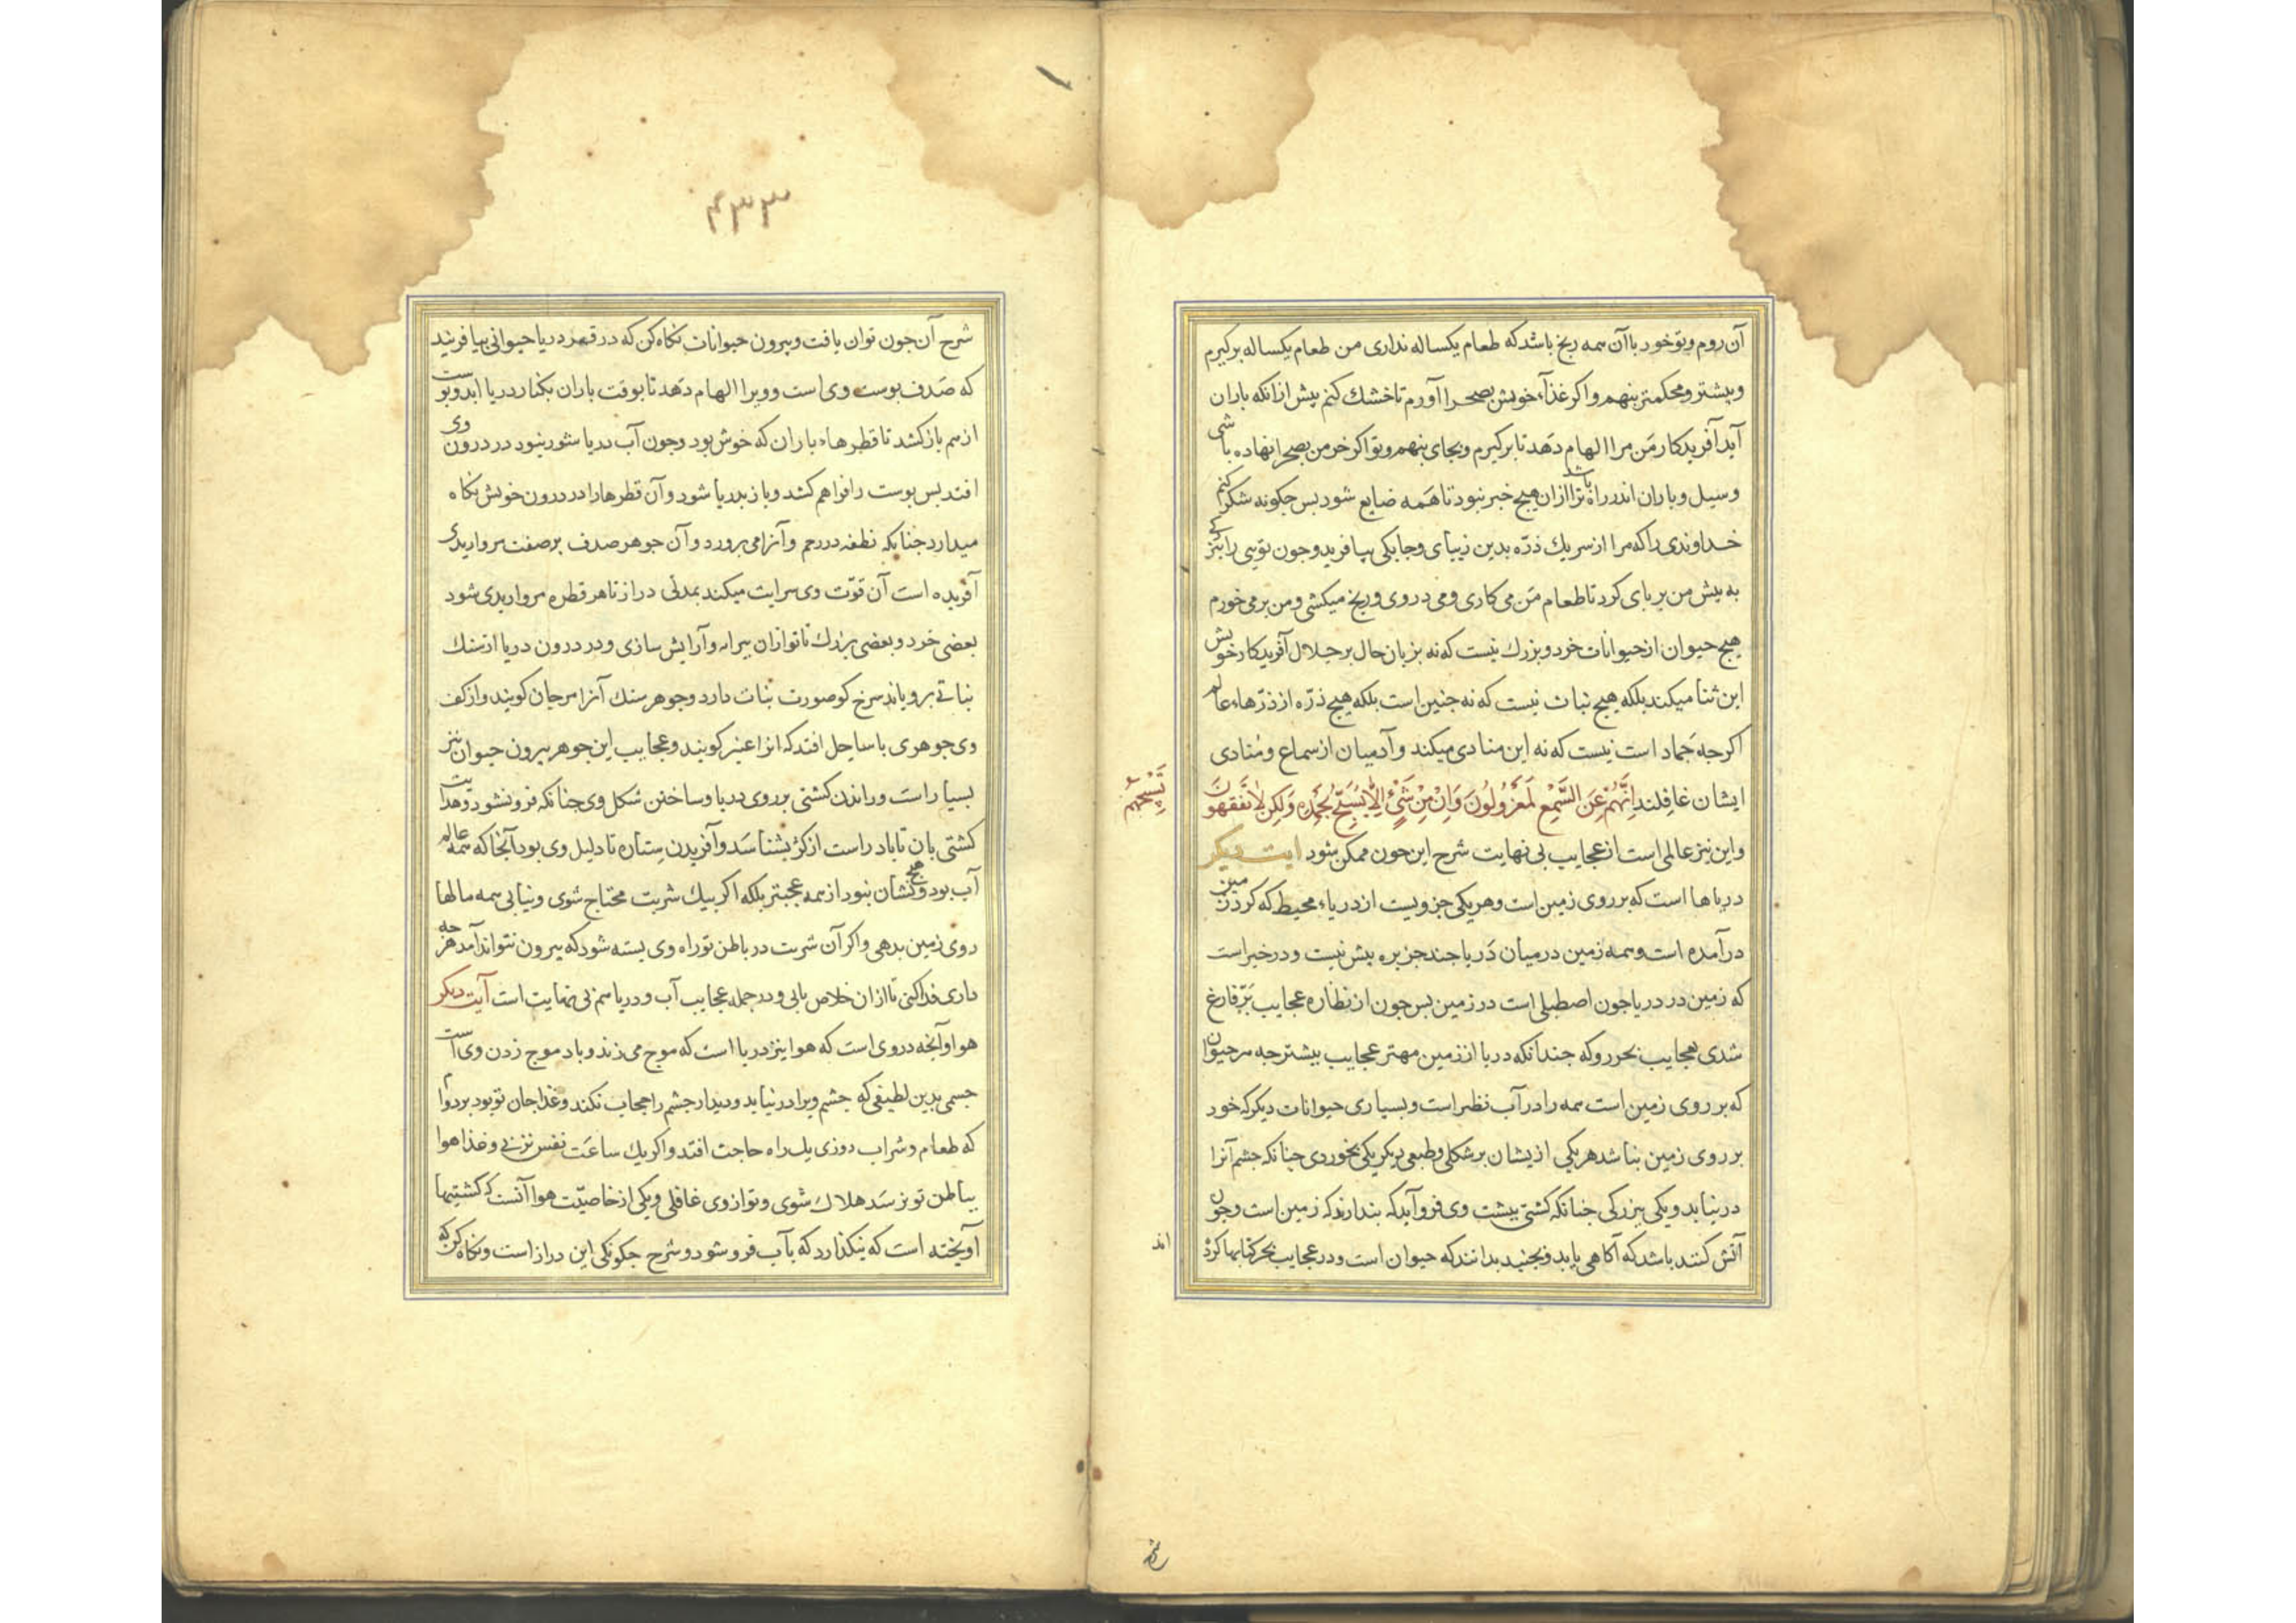 آن روم و تو خود با آن همه رنج باشد که طعام یکساله نداری من طعام یکساله برگیرم
و بیشتر و محکمتر بنهم و اگر غذاء خویش بصحرا آورم تا خشك کنم پیش ازانکه باران
آید آفریدکار من مرا الهام دهد تا برگیرم و بجای بنهم و تو اکر خرمن بصحرا نهاده باشی
و سیل و باران اندر راه باشد ترا ازان هیچ خبر نبود تا همه ضایع شود بس جکونه شکر کنم
خداوندی را که مرا از سر یك ذرّه بدین زیبای و جابکی بیافرید و جون تویی را
به بیش من بر بای کرد تا طعام من می کاری و می دروی و رنج میکشی و من بر می خورم
هیچ حیوان از حیوانات خرد و بزرك نیست که نه بزبان حال بر جلال آفریدکار خویش
این ثنا میکند بلکه هیج نبات نیست که نه جنین است بلکه هیچ ذرّه از ذرّهاء عالم
اکرجه جَماد است نیست که نه این منادی میکند و آدمیان از سماع و منادی
ایشان غافلند اِنَّهُمْ عَنِ السَّمْعِ لَمَعْزُولُونَ وَاِنْ مِنْ شَیْءٍ اِلاَّ یُسَبِّحُ بِحَمْدِهِ وَلکِنْ لاَ تَفْقَهُونَ
تَسْبِیحَهُمْ
و این نیز عالمی است از عجایب بی نهایت شرح این جون ممکن شود ایت دیکر
دریاها است که بر روی زمین است و هر یکی جزویست از دریاء محیط که کرد زمین
درآمده است و همه زمین در میان دَریا جند جزیره بیش نیست و در خبر است
که زمین در دریا جون اصطبلی است در زمین بس جون از نظاره عجایب بَرّ فارغ
شدی بعجایب بحر رو که جندانکه دریا از زمین مهتر عجایب بیشتر جه هر حیوان
که بر روی زمین است همه را در آب نظیر است و بسیاری حیوانات دیکر که خود
بر روی زمین نباشد هر یکی از یشان بر شکلی و طبعی دیکر یکی بخوردی جنانکه جشم آنرا
در نیابد و یکی ببزرکی جنانکه کشتی ببشت وی فرو آید که بندارند که زمین است و جون
آتش کنند باشد که آکاهی یابد و بجنبد بدانند که حیوان است و در عجایب بحر کتابها کرده
اند
شرح
۴۳۳
شرح آن جون توان یافت و بیرون حیوانات نکاه کن که در قعر دریا حیوانی بیافرید
که صَدف بوست وی است و ویرا الهام دَهد تا بوقت باران بکنار دریا اید و بوست
از هم باز کشد تا قطرهاء باران که خوش بود و جون آب دریا شور نبود در درون وی
افتد بس بوست را فراهم کشد و باز بدریا شود و آن قطرها را در درون خویش نکاه
میدارد جنانکه نطفه در رحم و آنرا می برورد و آن جوهر صدف بر صفت مرواریدی
آفریده است آن قوّت وی سرایت میکند بمدتی دراز تا هر قطره مرواریدی شود
بعضی خرد و بعضی بزرك تا تو ازان بیرایه و آرایش سازی و در درون دریا از سنك
نباتی برویاند سرخ کو صورت نبات دارد و جوهر سنك آنرا مرجان کویند و از کف
وی جوهری با ساحل افتد که انرا عنبر کویند و عجایب این جوهر بیرون حیوان نیز
بسیار است و راندن کشتی بر روی دریا و ساختن شکل وی جنانکه فرو نشود و هدایت
کشتی بان تا باد راست از کژ بشناسَد و آفریدن ستاره تا دلیل وی بود آنجا که همه عالم
آب بود و هیچ نشان نبود از همه عجبتر بلکه اکر بیك شربت محتاج شوی و نیابی همه مالها
روی زمین بدهی و اکر آن شربت در باطن تو راه وی بسته شود که بیرون نتواند آمد هرجه
داری فدا کنی تا ازان خلاص یابی و در جمله عجایب آب و دریا هم بی نهایت است آیت دیکر
هوا و آنجه در وی است که هوا نیز دریا است که موج می زند و باد موج زدن وی است
جسمی بدین لطیفی که جشم ویرا در نیابد و دیدار جشم را حجاب نکند و غذا جان تو بود بر دوام
که طعام و شراب روزی یك راه حاجت افتد و اکر یك ساعَت نفس نزنی و غذا هوا
بباطن تو نرسَد هلاك شوی و تو از وی غافلی و یکی از خاصیّت هوا آنست که کشتیها
آویخته است که نکذارد که بآب فرو شود و شرح جکونکی این دراز است و نکاه کن که